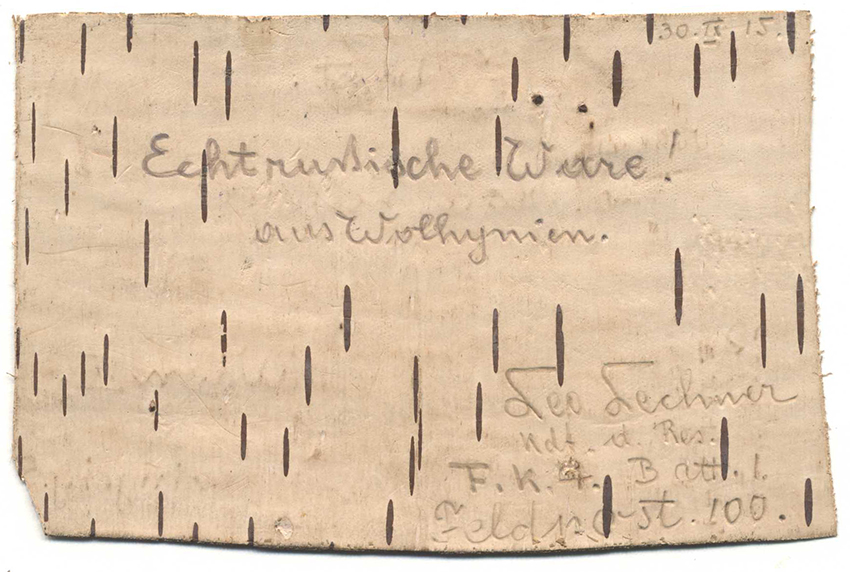 30. IX 15.
Echtrussische Ware!
aus Wolhynien.
Leo Lechner
Kdt. d. Res.
F. K. 4. Batt. 1.
Feldpost. 100.